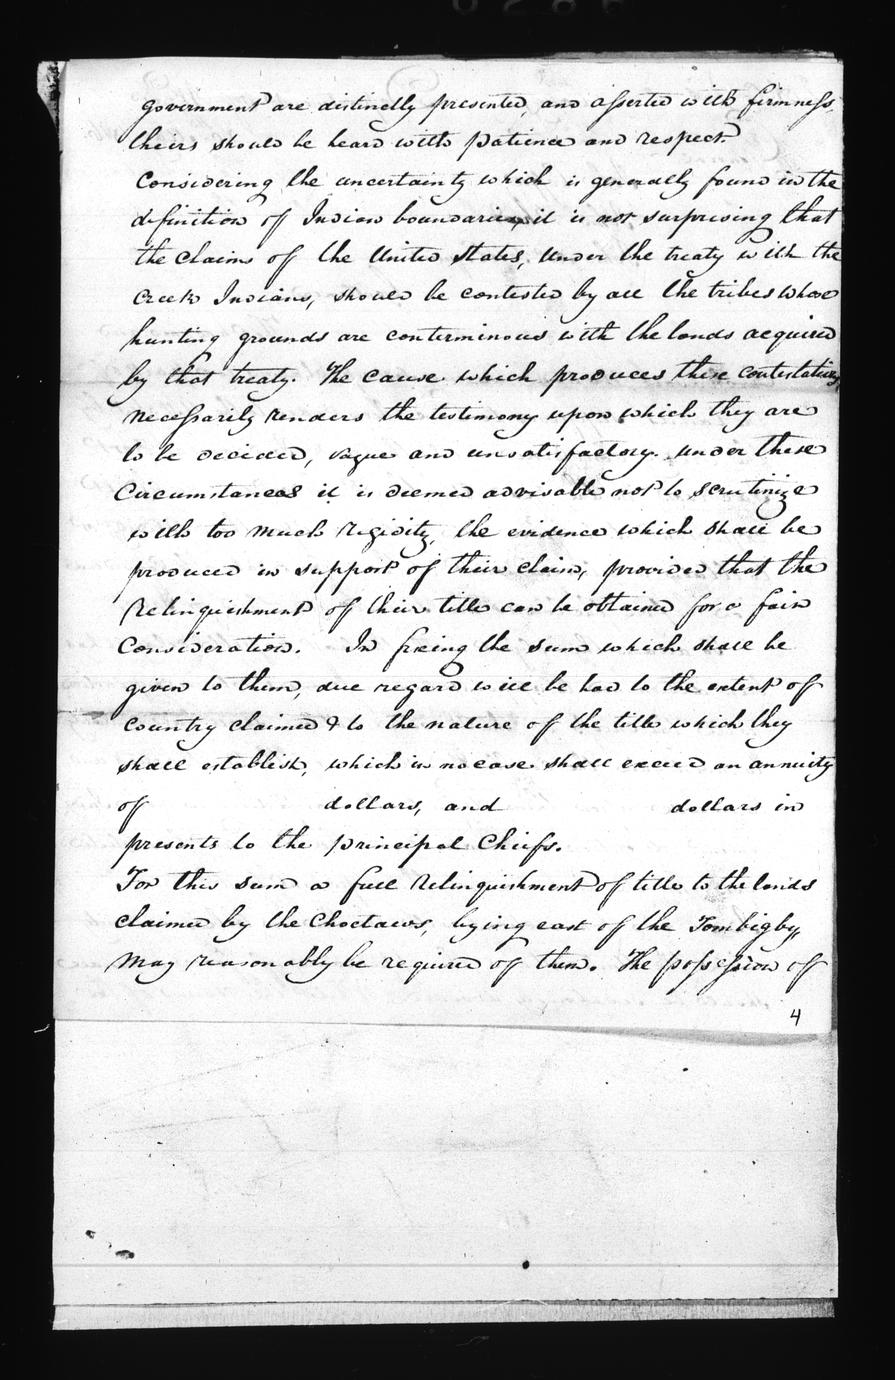 government are distinctly presented, and asserted with firmness,
theirs should be heard with patience and respect.
Considering the uncertainty which is generally found in the
definition of Indian boundaries, it is not surprising that
the claims of the United States, under the treaty with the
Creek Indians, should be contested by all the tribes whose
hunting grounds are conterminous with the lands acquired
by that treaty. The cause which produces these contestations,
necessarily renders the testimony upon which they are
to be decided, vague and unsatisfactory. under these
Circumstances it is deemed advisable not to scrutinize
with too much rigidity, the evidence which shall be
produced in support of their claim, provided that the
relinquishment of their title can be obtained for a fair
Consideration. In fixing the sum which shall be
given to them, due regard will be had to the extent of
country claimed & to the nature of the title which they
shall establish, which in no case shall exceed an annuity
of dollars, and dollars in
presents to the principal Chiefs.
For this sum a full relinquishment of title to the lands
claimed by the Choctaws, lying east of the Tombigby,
may reasonably be required of them. The possession of
4